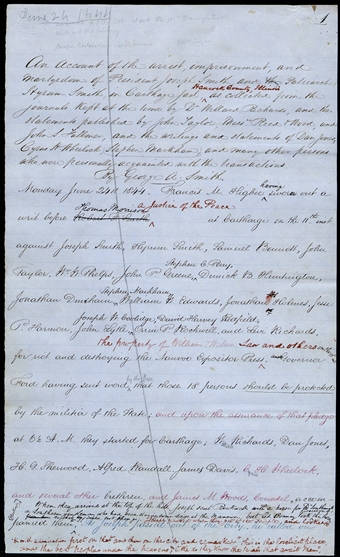 June 24 1844
1
An Account of the arrest, imprisonment, and
Martyrdom of President Joseph Smith and the Patriarch
Hancock County, Illinois
Hyrum Smith in Carthage Jail as collected from the
journals kept at the time by Dr Willard Richards, and the
statements published by John Taylor, and
John S. Fullmer and the writings and statements of Dan Jones,
Cyrus H Wheelock Stephen Markham, and many other persons
who were personally acquainted with the transactions
By George A. Smith.
having
Monday June 24th 1844. Francis M. Higbee sworn out a
Thomas Morrison a Justice of the Peace
writ before at Carthage on the 11th inst
against Joseph Smith, Hyrum Smith, Samuel Bennett, John
Stephen C Perry,
Taylor, Wm W Phelps, John P Greene, Dimick B Huntington,
Stephen Markham,
Jonathan Dunham, William W Edwards, Jonathan H Holmes, Jesse
Joseph W Coolidge, David Harvey Redfield,
P. Harmon, John Lytle, Orrin P. Rockwell, and Levi Richards,
the property of William Law and others
for riot and destroying the Nauvoo Expositor Press, Governor
Ford having sent word, that those 18 persons should be protected
by the militia of the State; and upon the assurance of that pledge
at 6½ A.M. they started for Carthage; Richards, Dan Jones,
H. G. Sherwood, Alfred Randall, James Davis, C H Wheelock,
and several other brethren, and James W Woods, Counsel, accom
When they arrived at the top of the hill, Joseph sent
panied them.
with admiration first on that and then on the city and remarked "this is the loveliest place,
and the best people under the heavens; little do they know the trials that await them."